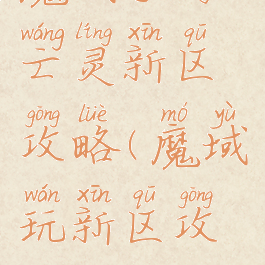 wáng líng xīn qū
亡灵新区
gōng lüè mó yù
攻略(魔域
wán xīn qū gōng
玩新区攻